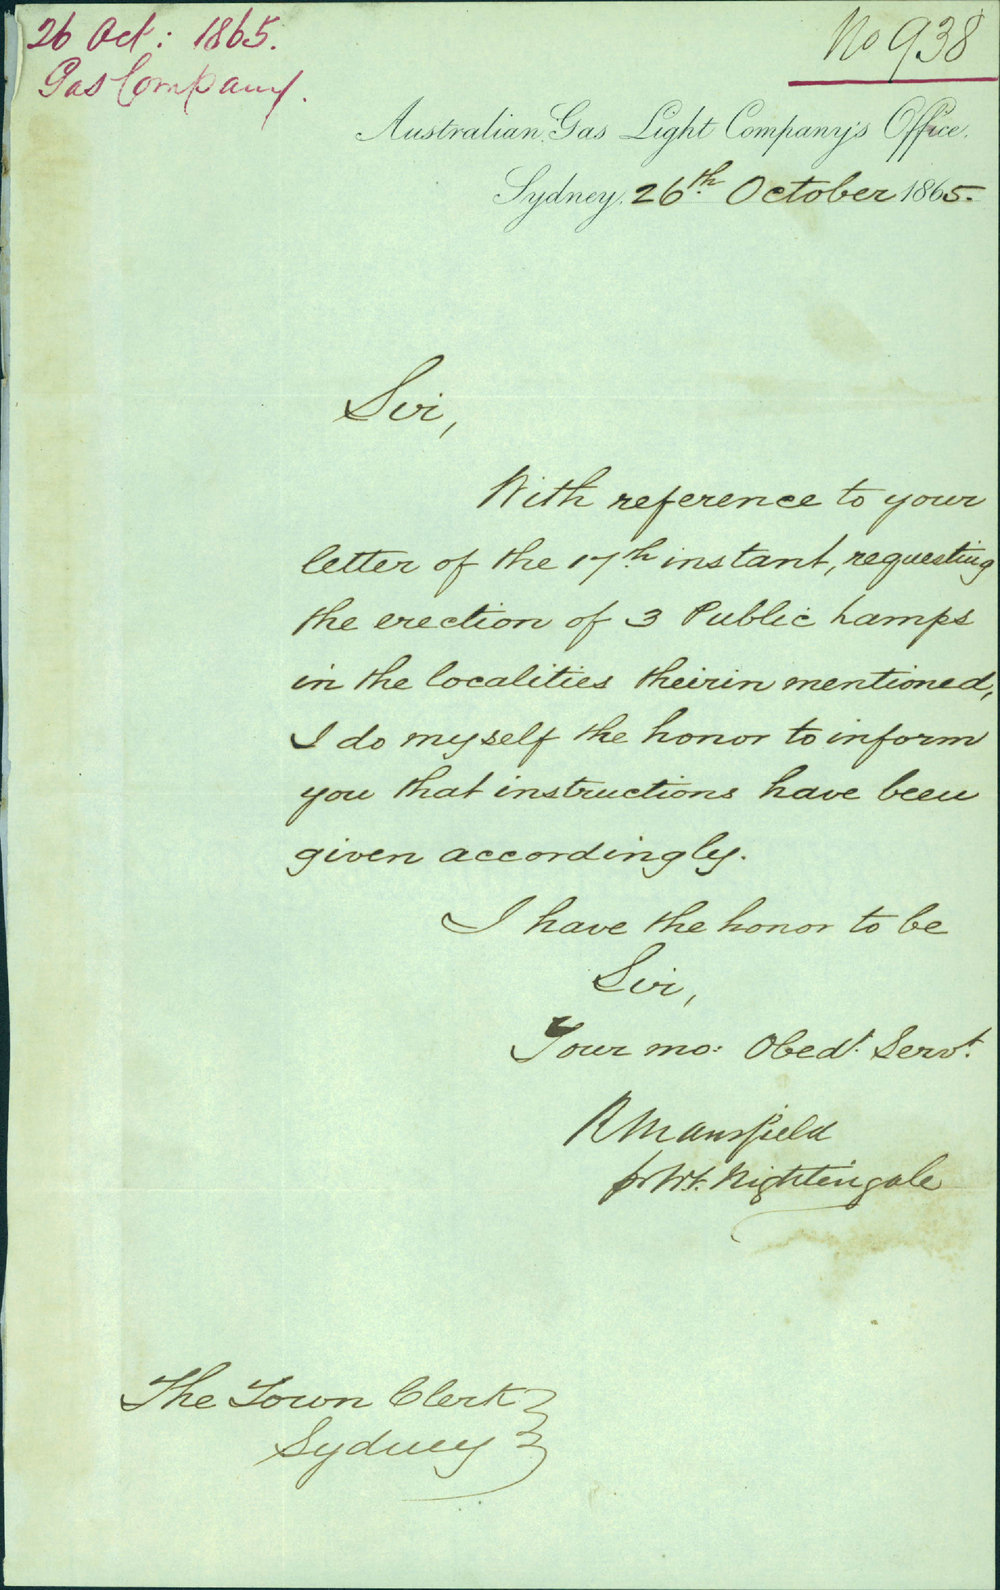 26 Oct: 1865.
Gas Company.
No 938
Australian Gas Light Company's Office.
Sydney, 26th October 1865.
Sir,
With reference to your
letter of the 17th instant, requesting
the erection of 3 Public Lamps
in the localities theirin mentioned,
I do myself the honor to inform
you that instructions have been
given accordingly.
I have the honor to be
Sir,
Your mo: Obedt. Servt.
R Mansfield
Nightingale
The Town Clerk
Sydney